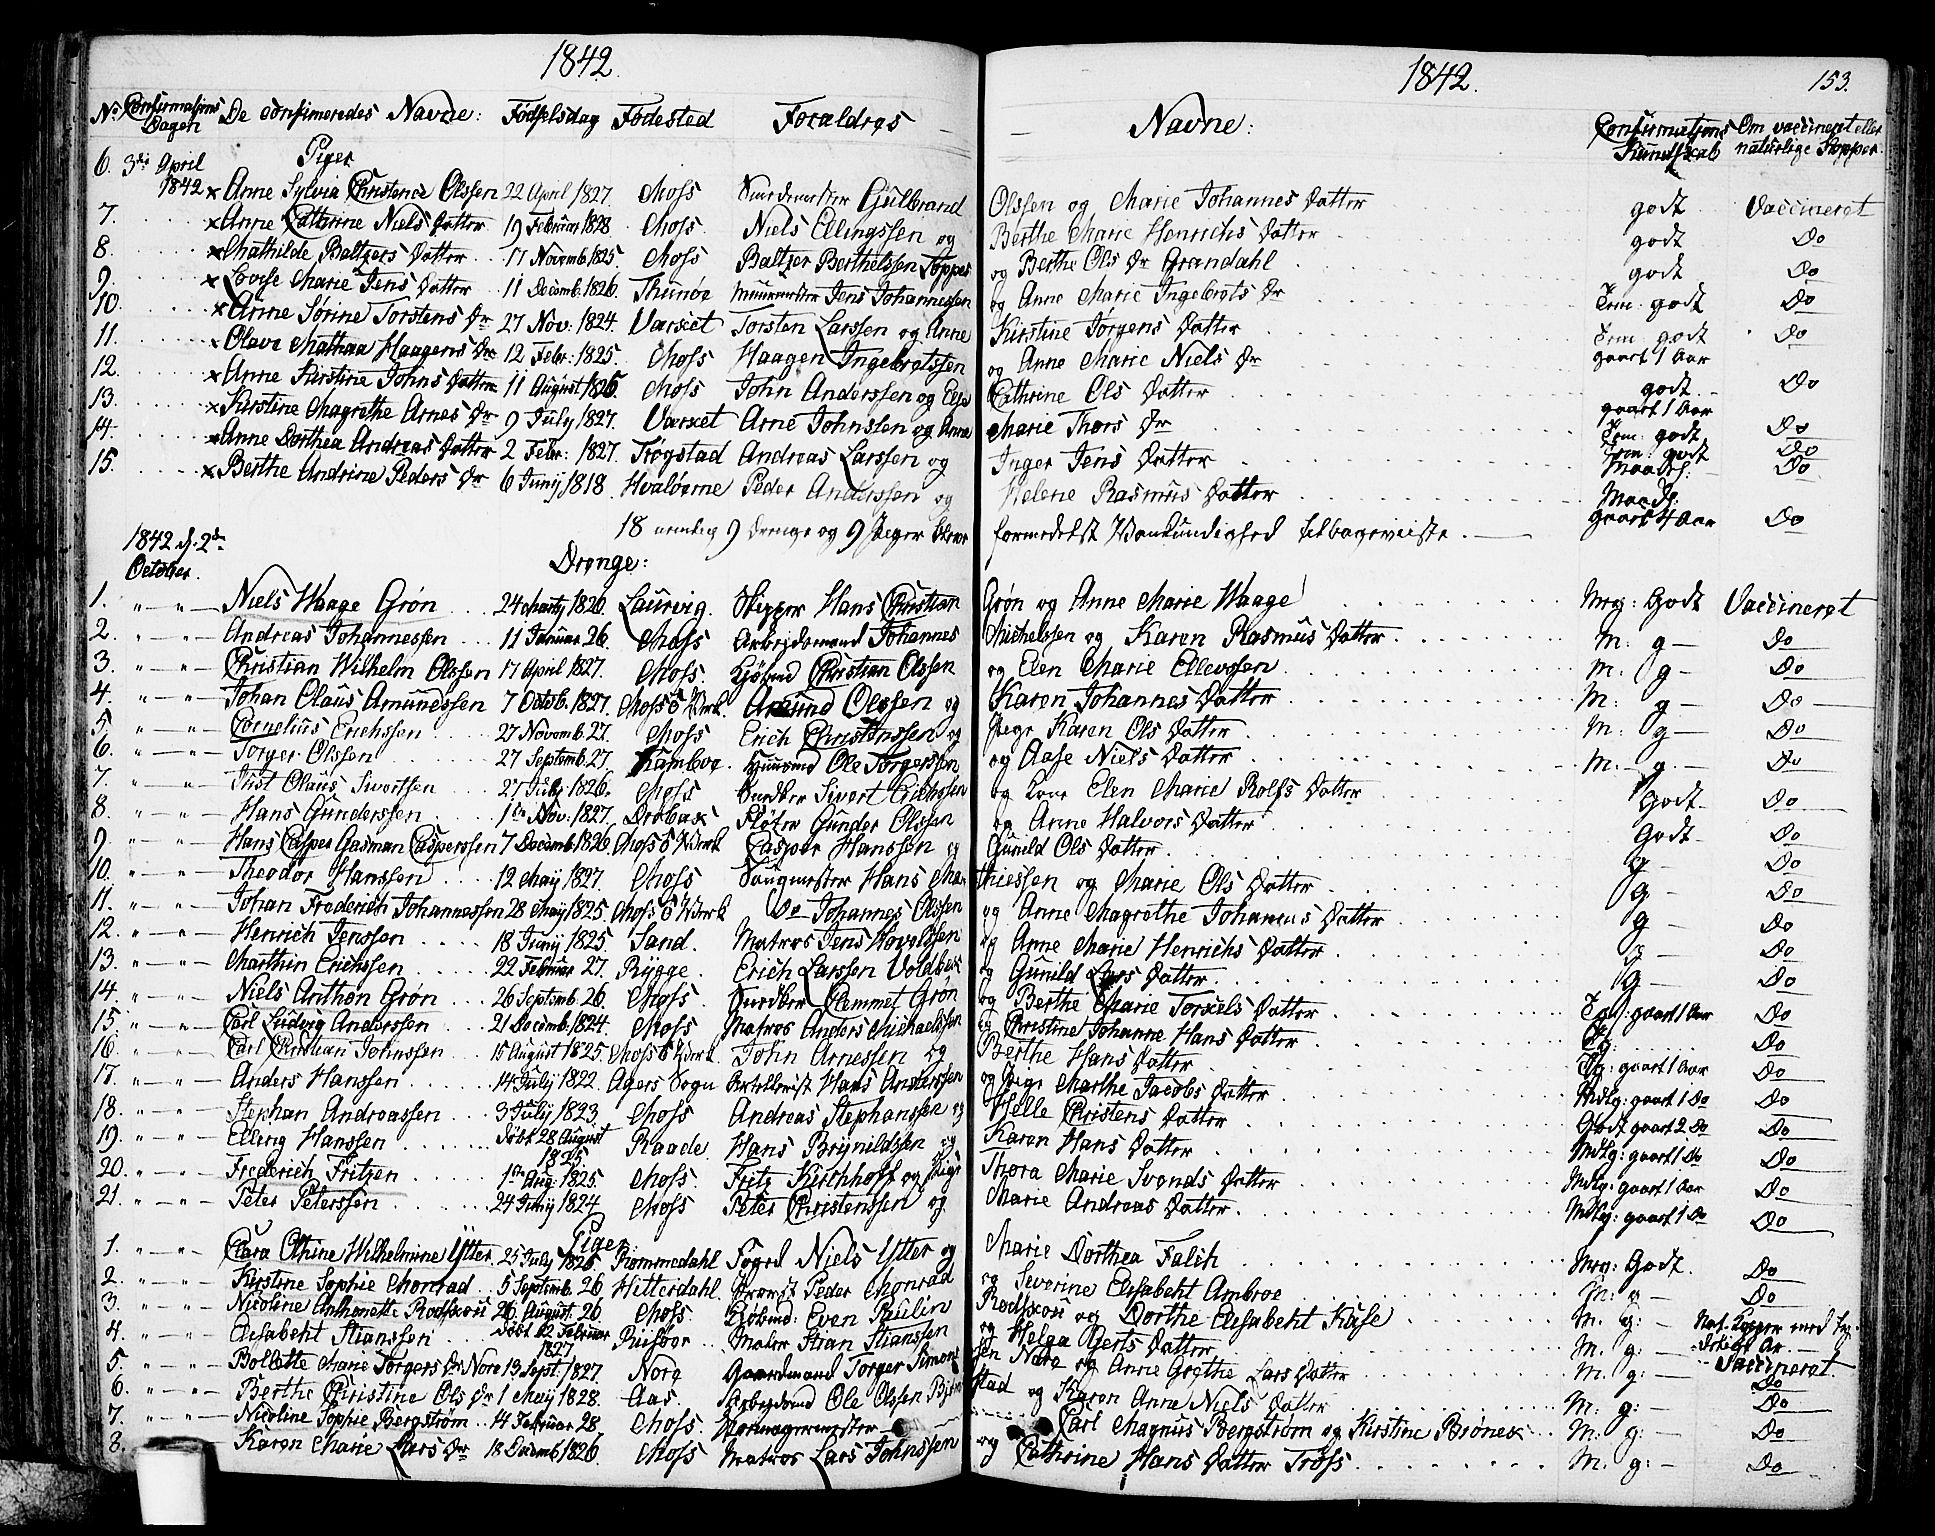 1842. 1842. 153.
No Confirmations Dagen De confirmeredes Navne: Fødselsdag Fødested Forældres — — Navne: Confirmations Kundskab Om vaccineret eller naturlige Kopper.
Piger
6. 3die April 1842 x Anne Sylvia Christence Olssen 22 April 1827. Moss Gulbrand Olssen og Marie Johannes Datter godt Vaccineret
7. x Anne Cathrine Niels Datter 19 Februar 1828 Moss. Niels Ellingssen og Berthe Marie Henrichs Datter godt Do
8. x Mathilde Baltzers Datter 17 Novemb. 1825 Moss Baltzer Berthelssen Toppes og Berthe Ols Dr Grandahl godt Do
9. x Lovise Marie Jens Datter 11 Decemb. 1826. Thunøe Muurmester Jens Johannessen og Anne Marie Ingebrets Dr Tem. godt Do
10. x Anne Sørine Torstens Dr 27 Nov: 1824. Varxet Torsten Larssen og Anne Kirstine Jørgens Datter Tem godt Do
11. x Olave Mathea Haagens Dr 12 Febr: 1825. Moss Haagen Ingebretssen og Anne Marie Niels Dr gaaet 1 Aar
12. x Anne Kirstine Johns Datter 11 August 1826. Moss John Anderssen og Else Cathrine Ols Datter godt Do
13. x Kirstine Magrethe Arnes Dr 9 July 1827. Varxet Arne Johnssen og Anne Marie Thors Dr gaaet 1 Aar Tem: godt Do
14. x Anne Dorthea Andreas Datter 2 Febr: 1827. Trøgstad Andreas Larssen og Inger Jens Datter Tem: godt Maadl: Do
15. x Berthe Andrine Peders Dr 6 Junij 1818. Hvaløerne Peder Anderssen og Helene Rasmus Datter Maadl: gaaet 4 Aar Do
18 nemlig 9 Drenge og 9 Piger bleve formedelst Vankundighed tilbageviiste.
1842 d: 2den October. Drenge:
1. Niels Waage Grøn 24 Marty 1826. Laurvig. Skipper Hans Christian Grøn og Anne Marie Waage Mrg: Godt Vaccineret
2. Andreas Johannessen 11 Januar 26. Moss Arbejdsmand Johannes Michelssen og Karen Rasmus Datter M: g — Do
3. Christian Wilhelm Olssen 17 April 1827. Moss. Kjøbmd Christian Olssen og Elen Marie Ellevssen M: g — Do
4. Johan Olaus Amundssen 7 Octob. 1827. Moss Værk Amund Olssen og Karen Johannes Datter M: g — Do
5. Cornelius Erichssen 27 Novemb. 27. Moss Erich Christenssen og Pige Karen Ols Datter M: g — Do
6. Torger Olssen 27 Septemb. 27. Kamboe. Huusmd Ole Torgerssen og Aase Niels Datter M: g. — Do
7. Just Olaus Sivertsen 27 July 1826. Moss Snedker Sivert Erichssen og Kone Elen Marie Rolfs Datter Godt Do
8. Hans Gunderssen 1ste Nov: 1827. Drøbak Fløter Gunder Olssen og Anne Halvors Datter Godt Do
9. Hans Casper Gasman Casperssen 7 Decemb. 1826. Moss Værk Casper Hanssen og Gunild Ols Datter g — Do
10. Theodor Hanssen 12 May 1827. Moss Saugmester Hans Mathiessen og Marie Ols Datter g — Do
11. Johan Frederich Johannessen 28 May 1825. Moss Værk Do Johannes Olssen og Anne Magrethe Johannes Datter g — Do
12. Henrich Jenssen 18 Junij 1825. Sand. Matros Jens Hovelssen og Anne Marie Henrichs Datter g — Do
13. Marthin Erichssen 22 Februar 27. Rygge. Erich Larssen Voldbæk og Gunild Lars Datter g — Do
14. Niels Anthon Grøn 26 Septemb. 26. Moss. Snedker Clemmet Grøn og Berthe Marie Torkels Datter gaaet 1 Aar Do
15. Carl Ludvig Anderssen 21 Decemb. 1824. Moss. Matros Anders Michaelssen og Christine Johanne Hans Datter Do
16. Carl Christian Johnssen 15 August 1825. Moss Værk John Arnessen og Berthe Hans Datter Tg: gaaet 1 Aar Do
17. Anders Hanssen 14 July 1822. Agers Sogn Artellerist Hans Anderssen og Pige Marthe Jacobs Datter Mdlg: gaaet 1 Do Do
18. Stephan Andreassen 3 July 1823. Moss Andreas Stephanssen og Helle Christens Datter Godt gaaet 2 Do Do
19. Elling Hanssen døbt 28 August 1825 Raade. Hans Brynildssen og Karen Hans Datter Mdlg: gaaet 1 Do Do
20. Frederich Fritzen 1ste Aug. 1825. Moss. Fritz Kirchhoff og Pige Thora Marie Svends Datter Mdlg: gaaet 1 Aar Do
21. Peter Peterssen 24 Junij 1824. Moss Peter Christenssen og Marie Andreas Datter Mdlg: gaaet 1 Do Do
Piger.
1. Clara Othine Wilhelmine Ytter 25 July 1826. Rommedahl Foged Niels Ytter og Marie Dorthea Falch Mrg: Godt. Do
2. Kirstine Sophie Monrad 5 Septemb. 26 Hitterdahl. Provst Peder Monrad og Severine Elisabeht Ambroe M: g — Do
3. Nicoline Anthonette Rodskou 26. August. 26. Moss. Kjøbmd: Even Bulin Rodskou og Dorthe Elisabeht Kasse M: g: — Nat. Kopper med
4. Elisabeht Stianssen døbt 12 Februar 1827 Riisøer Matros Stian Stianssen og Helga Berts Datter M: g: — Vaccineret.
5. Bollette Marie Torgers Dr Nore 13 Sept. 1827. Nore Gaardmand Torger Simonssen Nore og Anne Grethe Lars Datter M: g: — Do
6. Berthe Christine Ols Dr 1 May 1828. Aas. Arbejdsmd Ole Olssen Bjørnstad og Karen Anne Niels Datter M: g: — Do
7. Nicoline Sophie Bergstrøm 14 Februar 28. Moss. Carl Magnus Bergstrøm og Kirstine Brønex M: g: — Do
8. Karen Marie Lars Dr 18 Decemb 1826. Moss Matros Lars Johnssen og Cathrine Hans Datter Tross M: g: — Do